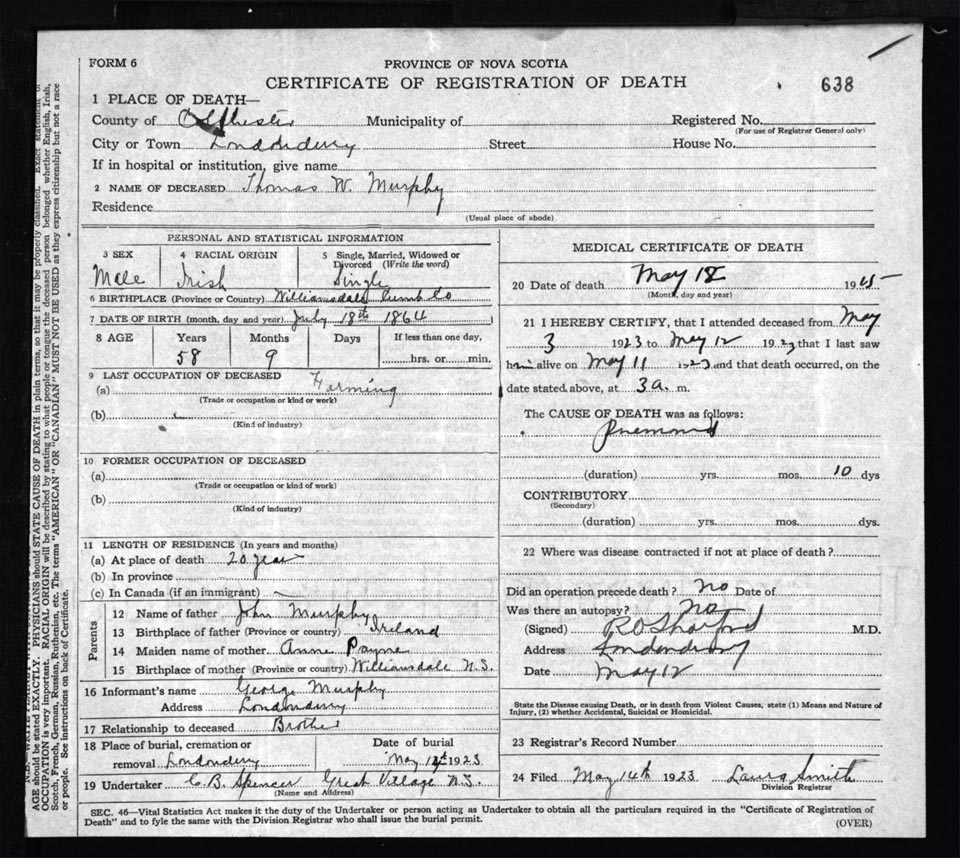 FORM 6
PROVINCE OF NOVA SCOTIA
CERTIFICATE OF REGISTRATION OF DEATH
638
1 PLACE OF DEATH—
County of Colchester Municipality of Registered No.
(For use of Registrar General only)
City or Town Londonderry Street House No.
If in hospital or institution, give name
2 NAME OF DECEASED Thomas W. Murphy
Residence
(Usual place of abode)
PERSONAL AND STATISTICAL INFORMATION
3 SEX
Male
4 RACIAL ORIGIN
Irish
5 Single, Married, Widowed or Divorced (Write the word)
Single
6 BIRTHPLACE (Province or Country) Williamsdale Cumb Co
7 DATE OF BIRTH (month, day and year) July 18th 1864
8 AGE Years Months Days If less than one day,
58 9 hrs. or min.
9 LAST OCCUPATION OF DECEASED
(a) Farming
(Trade or occupation or kind or work)
(b)
(Kind of industry)
10 FORMER OCCUPATION OF DECEASED
(a)
(Trade or occupation or kind of work)
(b)
(Kind of industry)
11 LENGTH OF RESIDENCE (In years and months)
(a) At place of death 20 year
(b) In province
(c) In Canada (if an immigrant)
Parents
12 Name of father John Murphy
13 Birthplace of father (Province or country) Ireland
14 Maiden name of mother Anne Payne
15 Birthplace of mother (Province or country) Williamsdale N.S.
16 Informant's name George Murphy
Address Londonderry
17 Relationship to deceased Brother
18 Place of burial, cremation or removal Londonderry
Date of burial
May 1923
19 Undertaker C.B. Spencer Great Village N.S.
(Name and Address)
MEDICAL CERTIFICATE OF DEATH
20 Date of death May 12 19
(Month, day and year)
21 I HEREBY CERTIFY, that I attended deceased from May
3 1923 to May 12 1923 that I last saw
him alive on May 11 1923 and that death occurred, on the
date stated above, at 3 a. m.
The CAUSE OF DEATH was as follows:
(duration) yrs. mos. 10 dys
CONTRIBUTORY
(Secondary)
(duration) yrs. mos. dys.
22 Where was disease contracted if not at place of death?
Did an operation precede death? No Date of
Was there an autopsy? No
(Signed) M.D.
Address Londonderry
Date May 12
State the Disease causing Death, or in death from Violent Causes, state (1) Means and Nature of
Injury, (2) whether Accidental, Suicidal or Homicidal.
23 Registrar's Record Number
24 Filed May 14th 1923 Laura Smith
Division Registrar
SEC. 46—Vital Statistics Act makes it the duty of the Undertaker or person acting as Undertaker to obtain all the particulars required in the "Certificate of Registration of
Death" and to fyle the same with the Division Registrar who shall issue the burial permit.
(OVER)
AGE should be stated EXACTLY. PHYSICIANS should STATE CAUSE OF DEATH in plain terms, so that it may be properly classified. Exact statement of
OCCUPATION is very important. RACIAL ORIGIN will be described by stating to what people or tongue the deceased person belonged whether English, Irish,
Scotch, French, German, Russian, Ruthenian, etc. The terms "AMERICAN" OR "CANADIAN" MUST NOT BE USED as they express citizenship but not a race
or people. See instructions on back of Certificate.